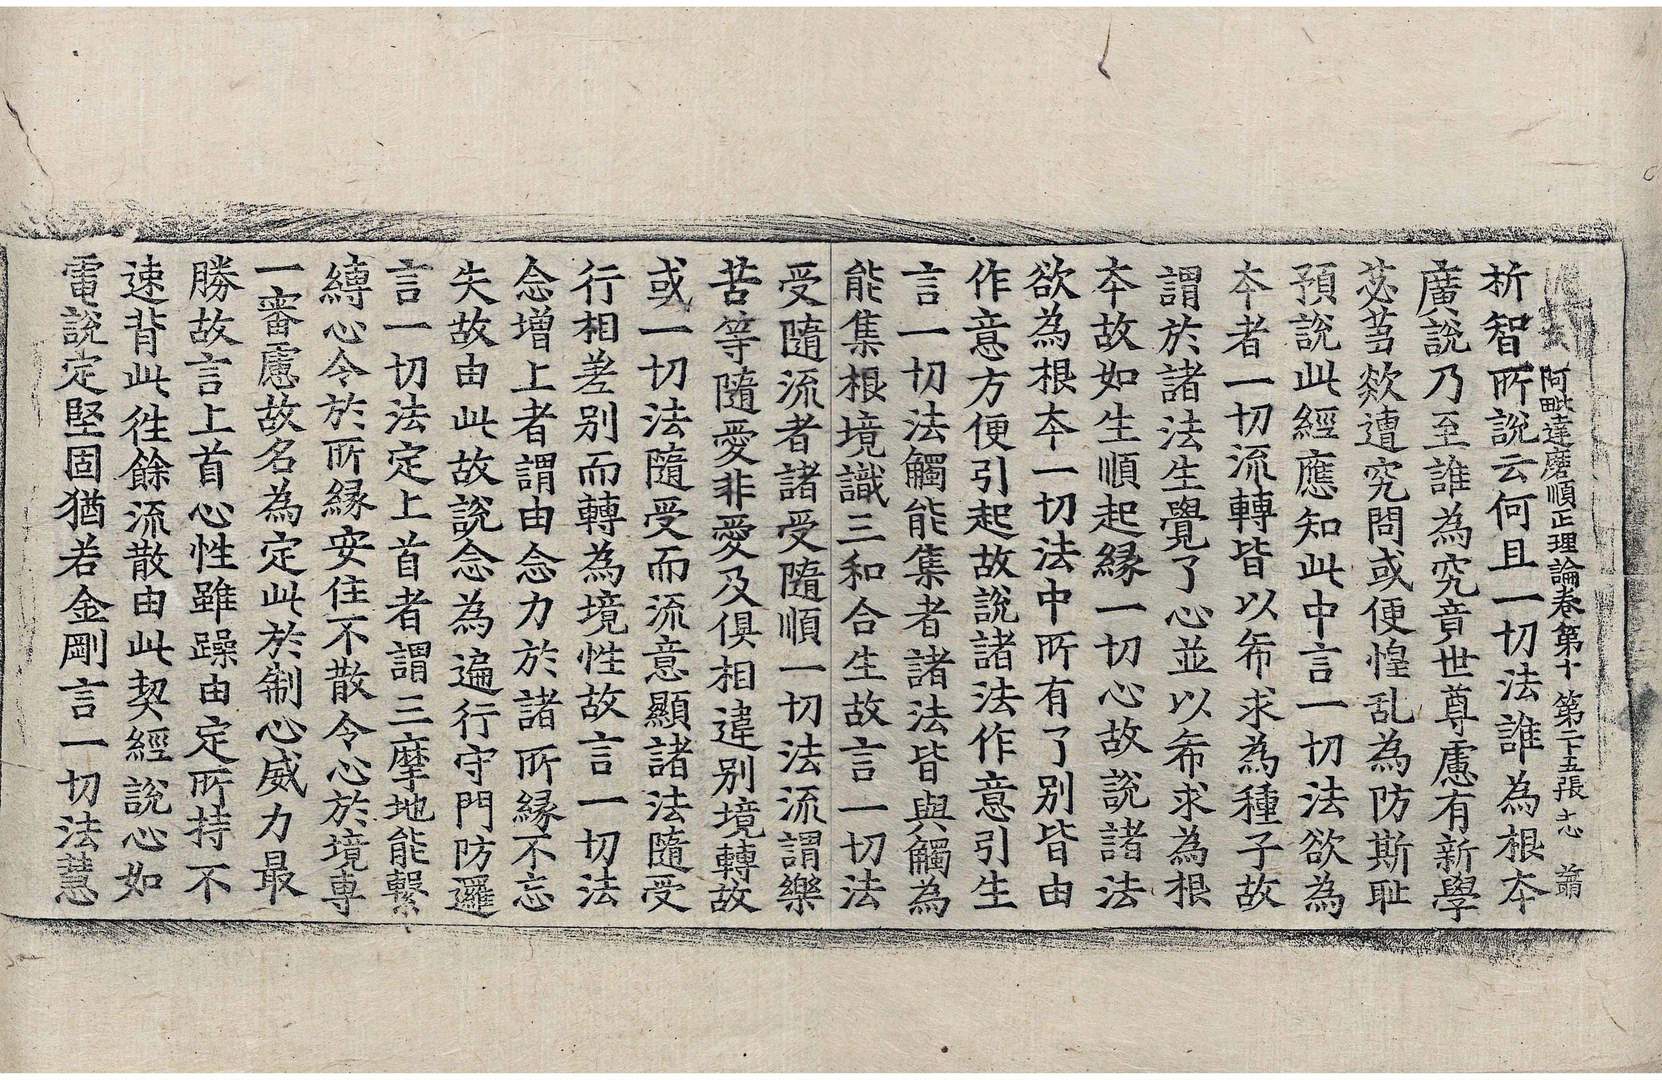 阿毗達磨順正理論卷第十　第二十五張　志　蕭
析智所說云何且一切法誰為根夲
廣說乃至誰為究竟世尊慮有新學
苾蒭欻遭究問或便惶乱為防斯耻
預說此經應知此中言一切法欲為
夲者一切流轉皆以希求為種子故
謂於諸法生覺了心並以希求為根
夲故如生順起緣一切心故說諸法
欲為根夲一切法中所有了別皆由
作意方便引起故說諸法作意引生
言一切法觸能集者諸法皆與觸為
能集根境識三和合生故言一切法
受隨流者諸受隨順一切法流謂樂
苦等隨愛非愛及俱相違別境轉故
或一切法隨受而流意顯諸法隨受
行相差別而轉為境性故言一切法
念增上者謂由念力於諸所緣不忘
失故由此故說念為遍行守門防邏
言一切法定上首者謂三摩地能繫
縛心令於所緣安住不散令心於境專
一審慮故名為定此於制心威力最
勝故言上首心性雖躁由定所持不
速背此徃餘流散由此契經說心如
電說定堅固猶若金剛言一切法慧